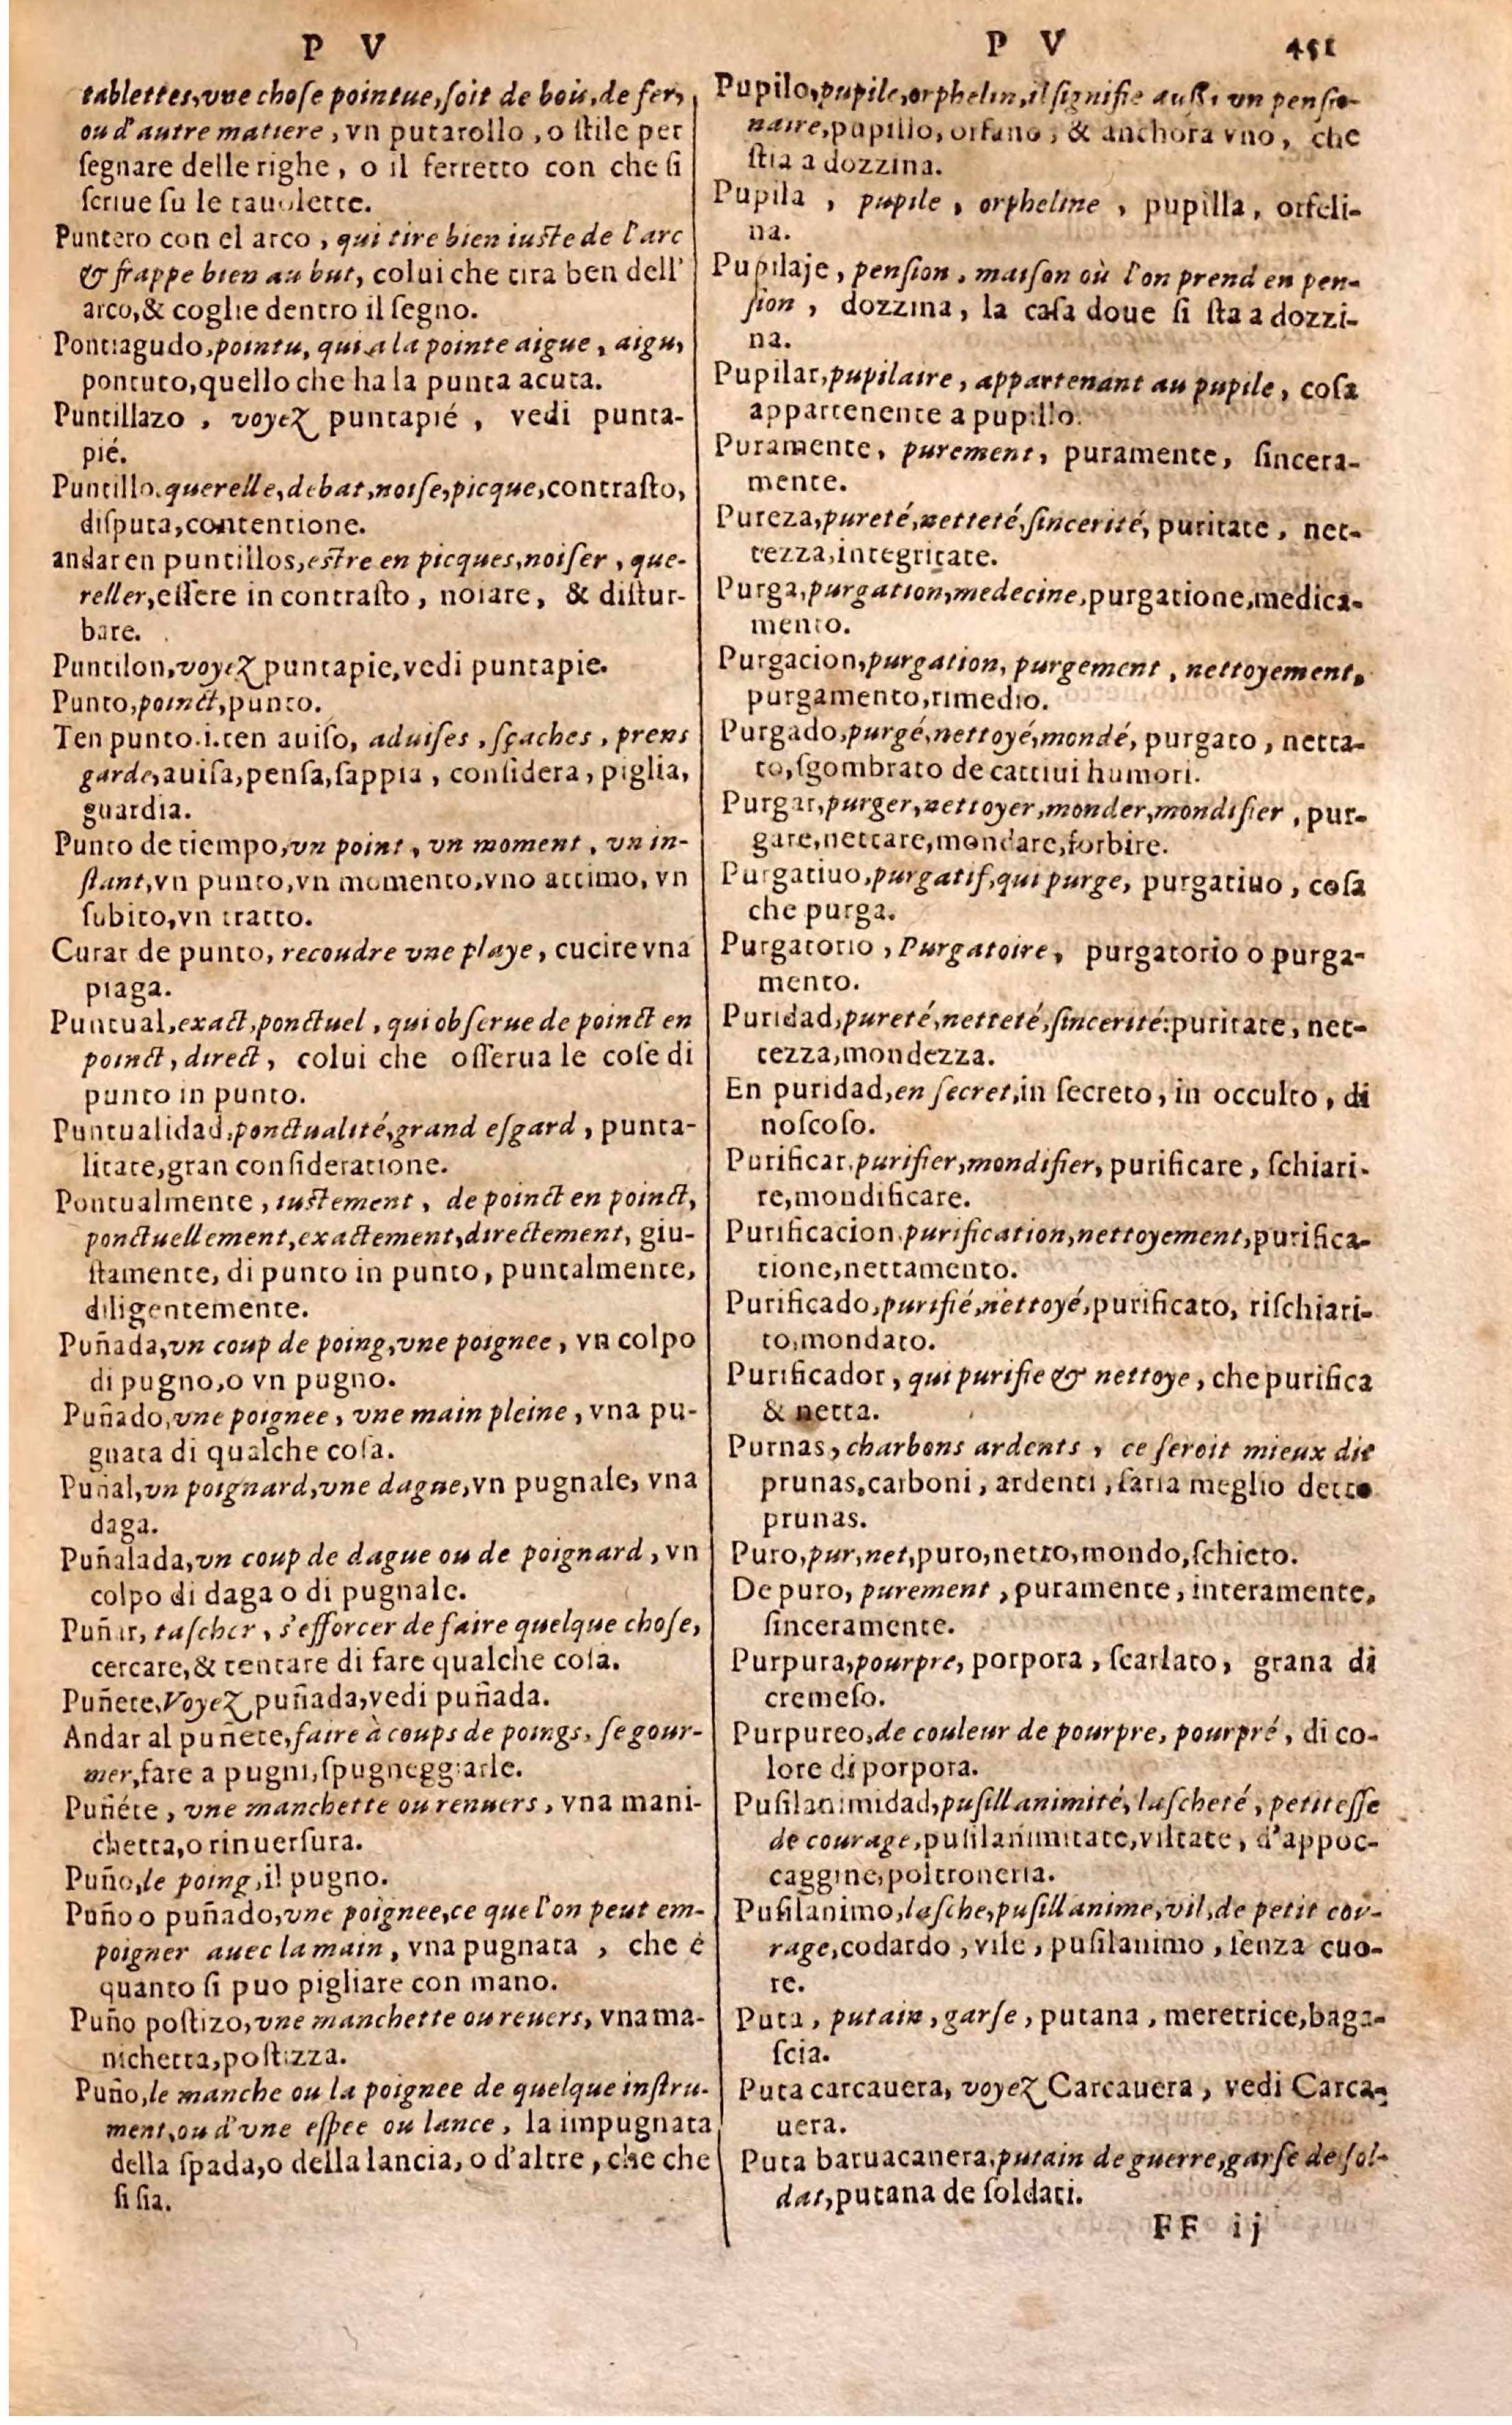 P V
tablettes, vne chose pointue, soit de bois, de fer,
ou d'autre matiere, vn putarollo, o stile per
segnare delle righe, o il ferretto con che si
scriue su le tauolette.
Puntero con el arco, qui tire bien iuste de l'arc
& frappe bien au but, colui che tira ben dell'
arco, & coglie dentro il segno.
Pontiagudo, pointu, qui a la pointe aigue, aigu,
pontuto, quello che ha la punta acuta.
Puntillazo, voyez puntapié, vedi punta-
pié.
Puntillo, querelle, debat, noise, picque, contrasto,
disputa, contentione.
andar en puntillos, estre en picques, noiser, que-
reller, essere in contrasto, noiare, & distur-
bare.
Puntilon, voyez puntapie, vedi puntapie.
Punto, poinct, punto.
Ten punto .i. ten auiso, aduises, sçaches, prens
garde, auisa, pensa, sappia, considera, piglia,
guardia.
Punto de tiempo, vn point, vn moment, vn in-
stant, vn punto, vn momento, vno attimo, vn
subito, vn tratto.
Curar de punto, recoudre vne playe, cucire vna
piaga.
Puntual, exact, ponctuel, qui obserue de poinct en
poinct, direct, colui che osserua le cose di
punto in punto.
Puntualidad, ponctualité, grand esgard, punta-
litate, gran consideratione.
Pontualmente, iustement, de poinct en poinct,
ponctuellement, exactement, directement, giu-
stamente, di punto in punto, puntalmente,
diligentemente.
Puñada, vn coup de poing, vne poignee, vn colpo
di pugno, o vn pugno.
Puñado, vne poignee, vne main pleine, vna pu-
gnata di qualche cosa.
Puñal, vn poignard, vne dague, vn pugnale, vna
daga.
Puñalada, vn coup de dague ou de poignard, vn
colpo di daga o di pugnale.
Puñar, tascher, s'efforcer de faire quelque chose,
cercare, & tentare di fare qualche cosa.
Puñete, Voyez puñada, vedi puñada.
Andar al puñete, faire à coups de poings, se gour-
mer, fare a pugni, spugneggiarle.
Puñéte, vne manchette ou renuers, vna mani-
chetta, o rinuersura.
Puño, le poing, il pugno.
Puño o puñado, vne poignee, ce que l'on peut em-
poigner auec la main, vna pugnata, che è
quanto si puo pigliare con mano.
Puño postizo, vne manchette ou reuers, vna ma-
nichetta, postizza.
Puño, le manche ou la poignee de quelque instru-
ment, ou d'vne espee ou lance, la impugnata
della spada, o della lancia, o d'altre, che che
si sia.
P V 451
Pupilo, pupile, orphelin, il signifie aussi vn pensio-
naire, pupillo, orfano, & anchora vno, che
stia a dozzina.
Pupila, pupile, orpheline, pupilla, orfeli-
na.
Pupilaje, pension, maison où l'on prend en pen-
sion, dozzina, la casa doue si sta a dozzi-
na.
Pupilar, pupilaire, appartenant au pupile, cosa
appartenente a pupillo.
Puramente, purement, puramente, sincera-
mente.
Pureza, pureté, netteté, sincerité, puritate, net-
tezza, integritate.
Purga, purgation, medecine, purgatione, medica-
mento.
Purgacion, purgation, purgement, nettoyement,
purgamento, rimedio.
Purgado, purgé, nettoyé, mondé, purgato, netta-
to, sgombrato de cattiui humori.
Purgar, purger, nettoyer, monder, mondifier, pur-
gare, nettare, mondare, forbire.
Purgatiuo, purgatif, qui purge, purgatiuo, cosa
che purga.
Purgatorio, Purgatoire, purgatorio o purga-
mento.
Puridad, pureté, netteté, sincerité: puritate, net-
tezza, mondezza.
En puridad, en secret, in secreto, in occulto, di
noscoso.
Purificar, purifier, mondifier, purificare, schiari-
re, mondificare.
Purificacion, purification, nettoyement, purifica-
tione, nettamento.
Purificado, purifié, nettoyé, purificato, rischiari-
to, mondato.
Purificador, qui purifie & nettoye, che purifica
& netta.
Purnas, charbons ardents, ce seroit mieux dit
prunas, carboni, ardenti, saria meglio detto
prunas.
Puro, pur, net, puro, netto, mondo, schieto.
De puro, purement, puramente, interamente,
sinceramente.
Purpura, pourpre, porpora, scarlato, grana di
cremeso.
Purpureo, de couleur de pourpre, pourpré, di co-
lore di porpora.
Pusilanimidad, pusillanimité, lascheté, petitesse
de courage, pusilanimitate, viltate, d'appoc-
caggine, poltroneria.
Pusilanimo, lasche, pusillanime, vil, de petit cou-
rage, codardo, vile, pusilanimo, senza cuo-
re.
Puta, putain, garse, putana, meretrice, baga-
scia.
Puta carcauera, voyez Carcauera, vedi Carca-
uera.
Puta baruacanera, putain de guerre, garse de sol-
dat, putana de soldati.
FF ij